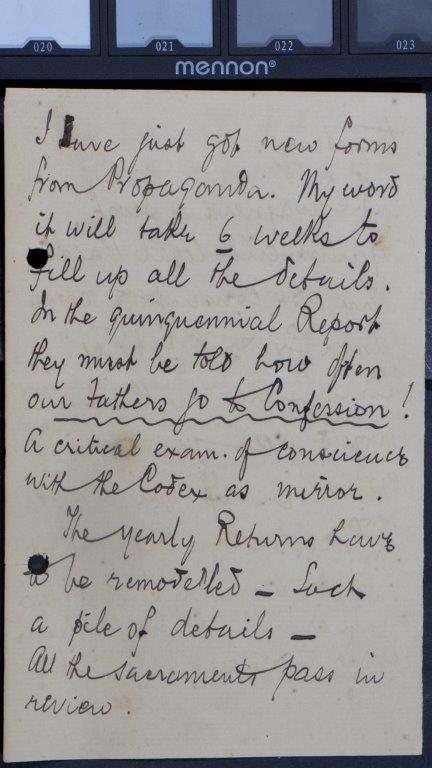 020 021 022 023
mennon®
I have just got new forms
from Propaganda. My word
it will take 6 weeks to
fill up all the details.
In the quinquennial Report
they must be told how often
our Fathers go to Confession!
A critical exam. of conscience
with the Codex as mirror.
The yearly Returns have
to be remodelled – Such
a pile of details –
All the sacraments pass in
review.